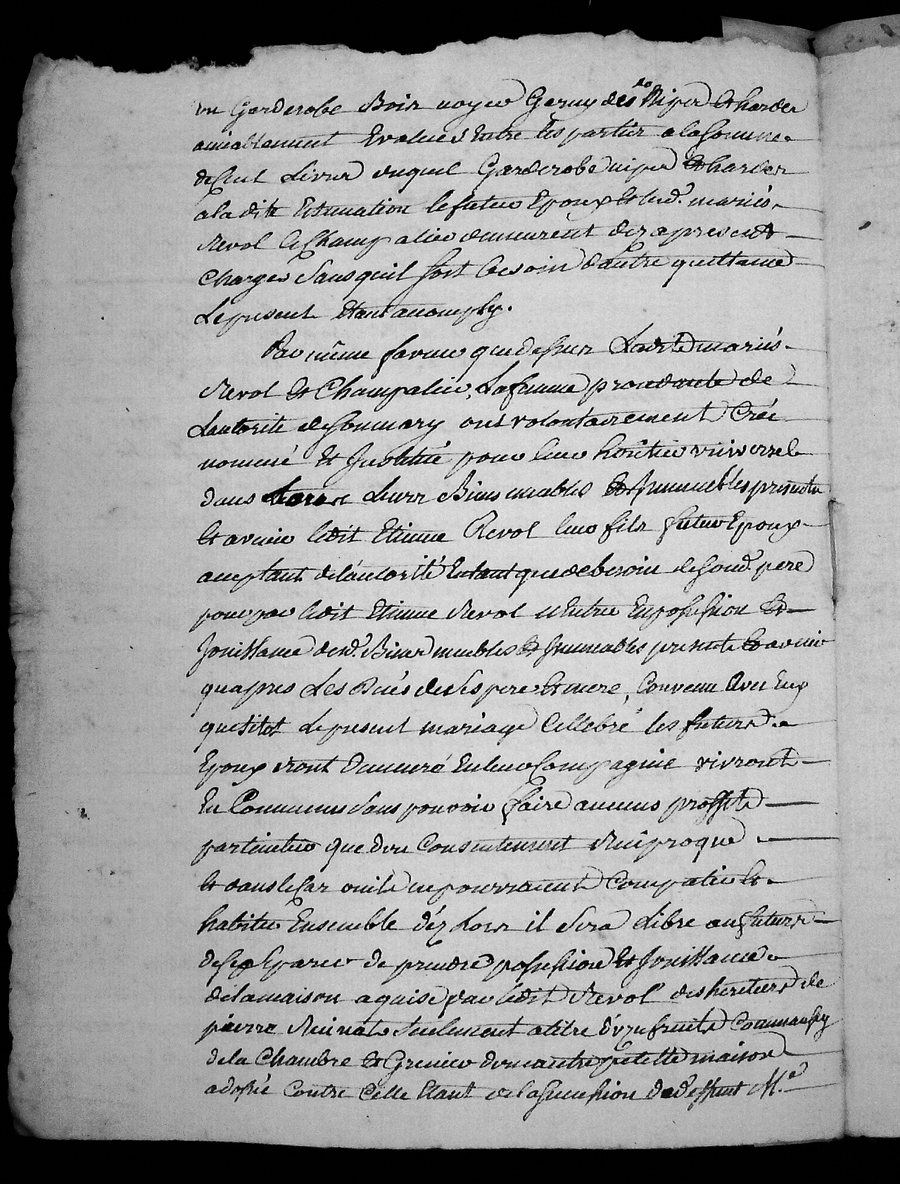 un Garderobe Bois noyer Garny des Nipes et hardes
amiablement Evalués Entre les partie a la somme
de cent Livres duquel Garderobe nipes et hardes
a ladite Estimation le futur Epoux et lesd. mariés
Revol et Champalier demeurent dezapresent
Charges sans quil soit besoin dautre quittance
Le present Etant accomply.
Par même faveur que dessus Lesdits mariés
Revol et Champalier, La femme procedante de
Lautorité de son mary ont volontairement Créé
nommé et Institué pour leur héritier universel
dans Leurs Biens meubles et Immeubles presents
et avenir ledit Etienne Revol leur fils futur Epoux
acceptant de lautorité Entant que de besoin de sond. pere
pour par ledit Etienne Revol n'entrer En possession et
Jouissance desd. Biens meubles et Immeubles presents et avenir
quapres Les Decés de ses pere et mere, Convenu Avec Eux
que sitot le present mariage Cellebré les futurs
Epoux iront Demeuré En leur Compagnie vivront
En Communs sans pouvoir faire aucuns proffits
particulier que du Consentement Reciproque
et dans le Cas ou ils ne pourraient Compatir et
habiter Ensemble déz Lors il sera Libre au futurs
de se separer de prendre possession et Jouissance
de la maison aquise par ledit Revol des heritiers de
pierre Reinat seulement a titre d'usufruit Comme aussy
de la Chambre et Grenier dune autre petitte maison
adossé Contre Celle Etant de la succession dud. deffunt Me